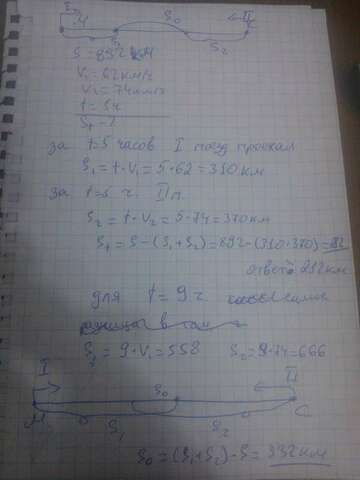 I S₀ II
M S₁ S₂ C
S = 892 км
V₁ = 62 км/ч
V₂ = 74 км/ч
t = 5ч
S₀ - ?
за t=5 часов I поезд проехал
S₁ = t · V₁ = 5·62 = 310 км
за t=5 ч. II п.
S₂ = t · V₂ = 5·74 = 370 км
S₀ = S - (S₁+S₂) = 892-(310+370) =
ответ: 212 км
для t = 9 ч
S₁ = 9·V₁ = 558 S₂ = 9·74 = 666
I S₀ II
M S₁ S₂ C
S₀ = (S₁+S₂)-S = 332 км